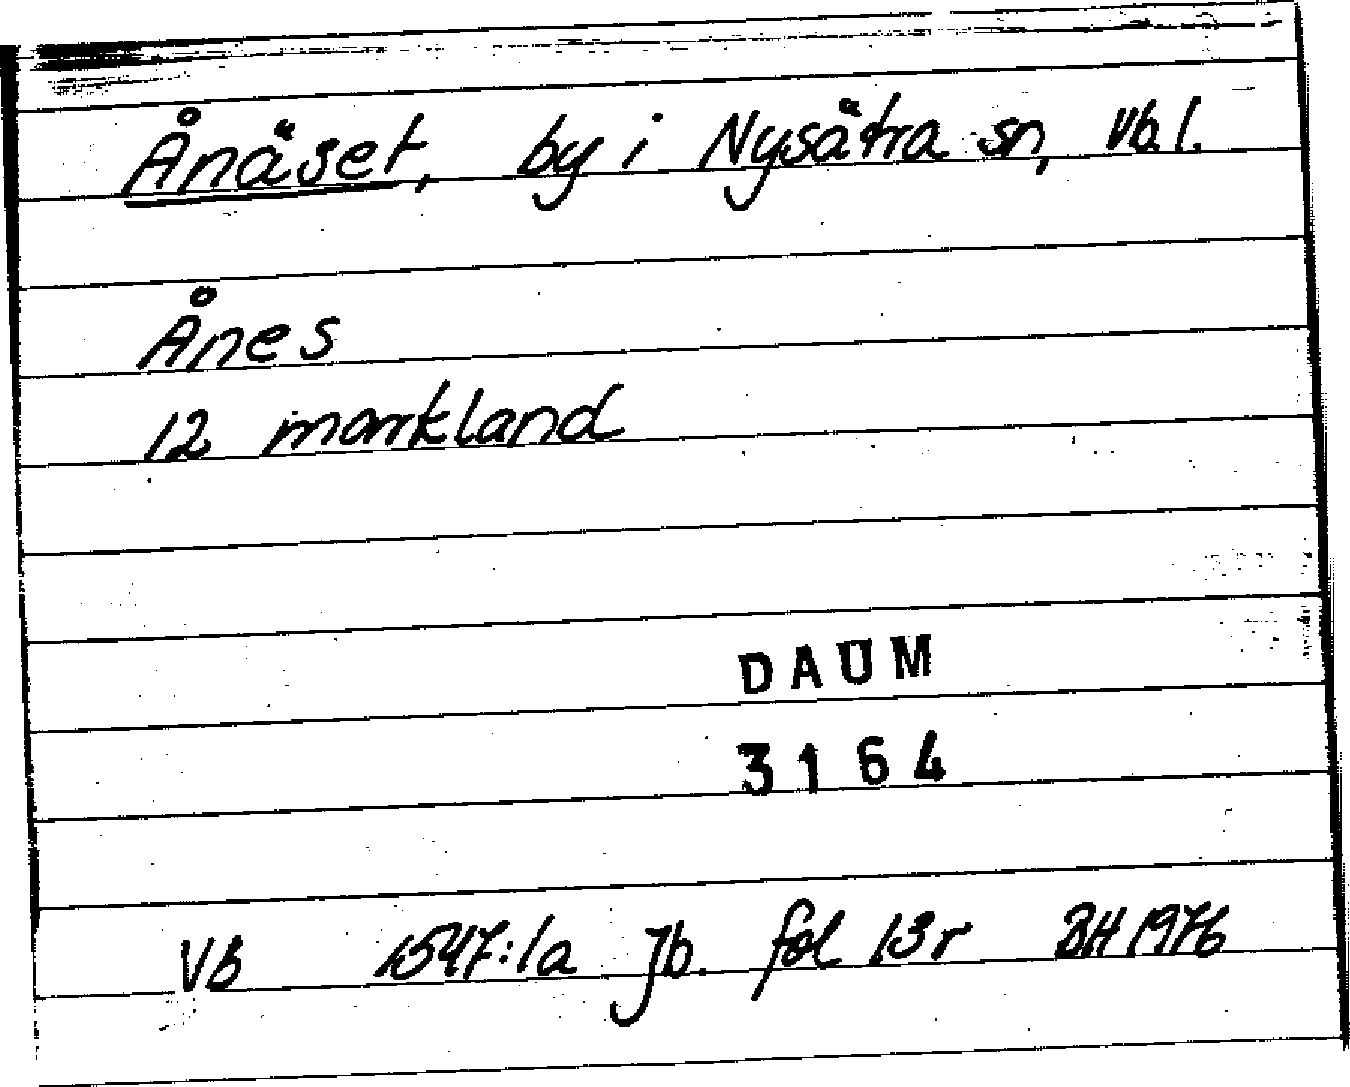 Ånäset, by i Nysätra sn, Vb.l.
Ånes
12 markland
DAUM
3164
Vb 1547:1a Jb. fol 13r BH 1976